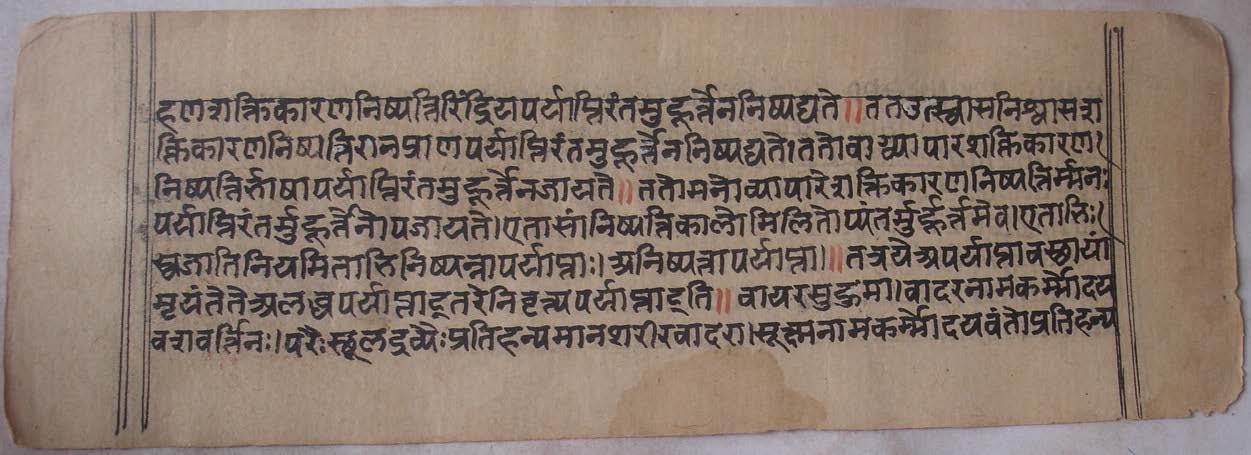 हणशक्तिकारणनिष्पत्तिरिंद्रियपर्याप्तिरंतमुहूर्त्तेननिष्पद्यते॥ततउत्स्वासनिश्वासश
क्तिकारणनिष्पत्तिरानप्राणपर्याप्तिरंतमुहूर्त्तेननिष्पद्यते।ततोवाग्व्यापारशक्तिकारण।
निष्पत्तिर्भाषापर्याप्तिरंतमुहूर्त्तेनजायते॥ततोमनोव्यापारेशक्तिकारणनिष्पत्तिर्म्मनः
पर्याप्तिरंतर्मुहूर्त्तेनोपजायते।एतासांनिष्पत्तिकालोमिलितोप्यंतर्मुर्हूर्त्तमेव।एताभिः।
स्वजातिनियमिताभिनिष्पन्नापर्याप्ताः।अनिष्पन्नापर्याप्ता।॥तत्रयेअपर्याप्तावस्छायां
मृयंतेतेअलब्धपर्याप्ताद्तरेनिवृत्यपर्याप्ताद्ति॥वायरसुहुमा।वादरनामकर्म्मोदय
वशवर्त्तिनः।परैःस्छूलद्रव्यैःप्रतिहन्यमानशरीरवादरा।सूक्ष्मनामकर्म्मोदयवंतोप्रतिहन्य